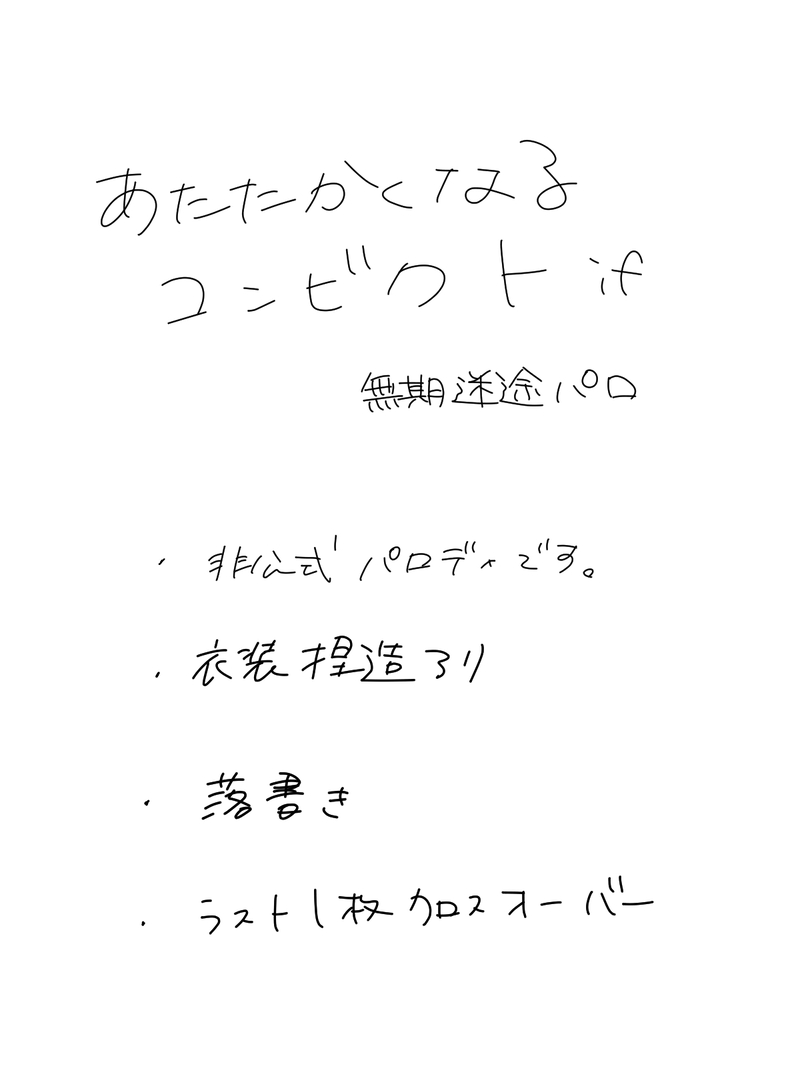 あたたかくなる
コンビクト if
無期迷途パロ
・ 非公式パロディです。
・ 衣装捏造アリ
・ 落書き
・ ラスト1枚クロスオーバー